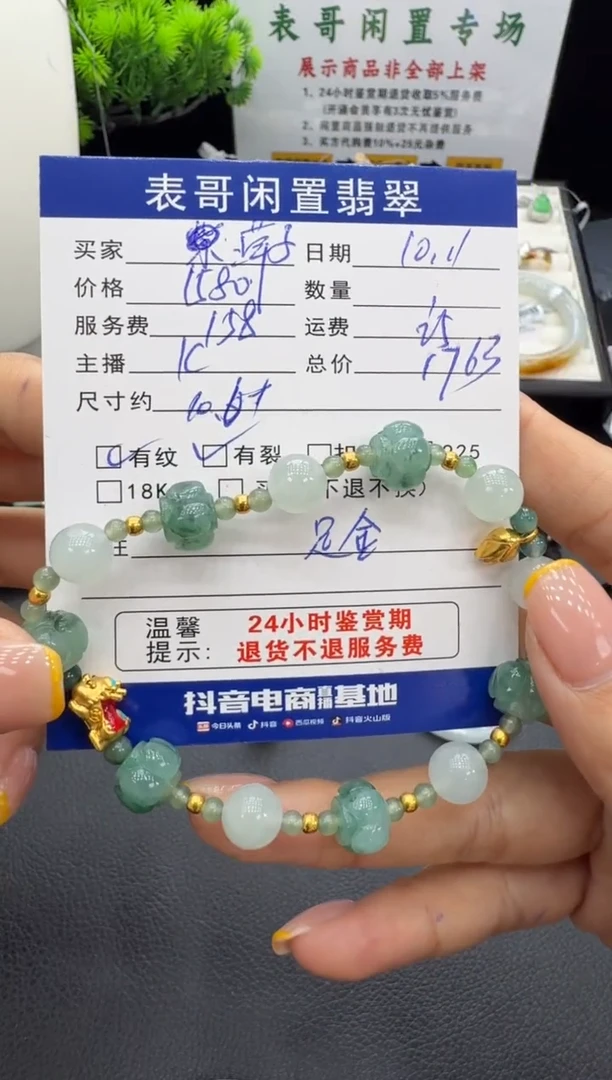 表哥闲置专场
展示商品非全部上架
1、24小时鉴赏期退货收取5%服务费
(开通会员享有3次无忧鉴赏)
2、闲置商品强制退货不再提供服务
3、买方代购费10%+25元杂费
表哥闲置翡翠
买家 日期 10.11
价格 1580 数量 1
服务费 158 运费 25
主播 K 总价 1763
尺寸约
有纹 有裂 925
18K 下退不换)
足金
温馨提示: 24小时鉴赏期
退货不退服务费
抖音电商直播基地
今日头条 抖音 西瓜视频 抖音火山版